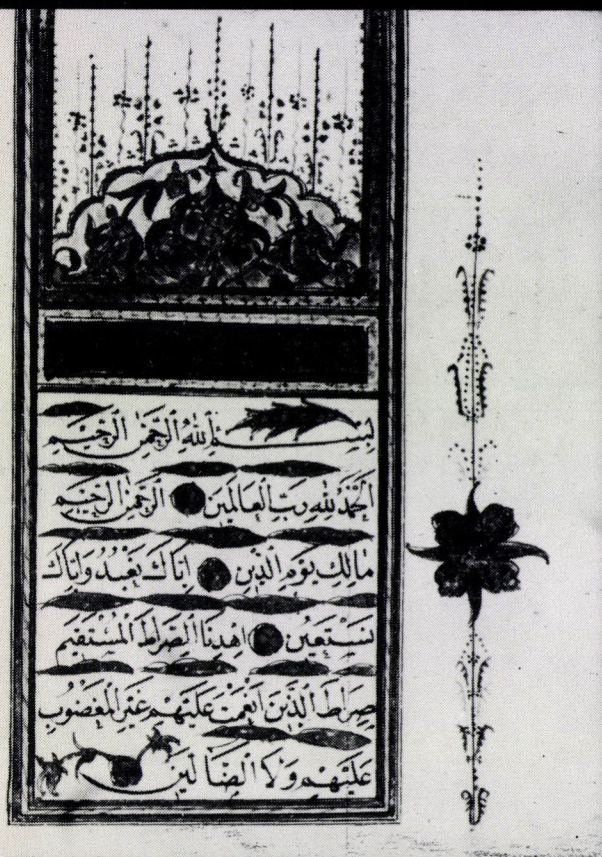 بِسْمِ اللّٰهِ الرَّحْمٰنِ الرَّحِيْمِ
اَلْحَمْدُ لِلّٰهِ رَبِّ الْعَالَمِيْنَ الرَّحْمٰنِ الرَّحِيْمِ
مَالِكِ يَوْمِ الدِّيْنِ اِيَّاكَ نَعْبُدُ وَاِيَّاكَ
نَسْتَعِيْنُ اِهْدِنَا الصِّرَاطَ الْمُسْتَقِيْمَ
صِرَاطَ الَّذِيْنَ اَنْعَمْتَ عَلَيْهِمْ غَيْرِ الْمَغْضُوْبِ
عَلَيْهِمْ وَلَا الضَّالِّيْنَ